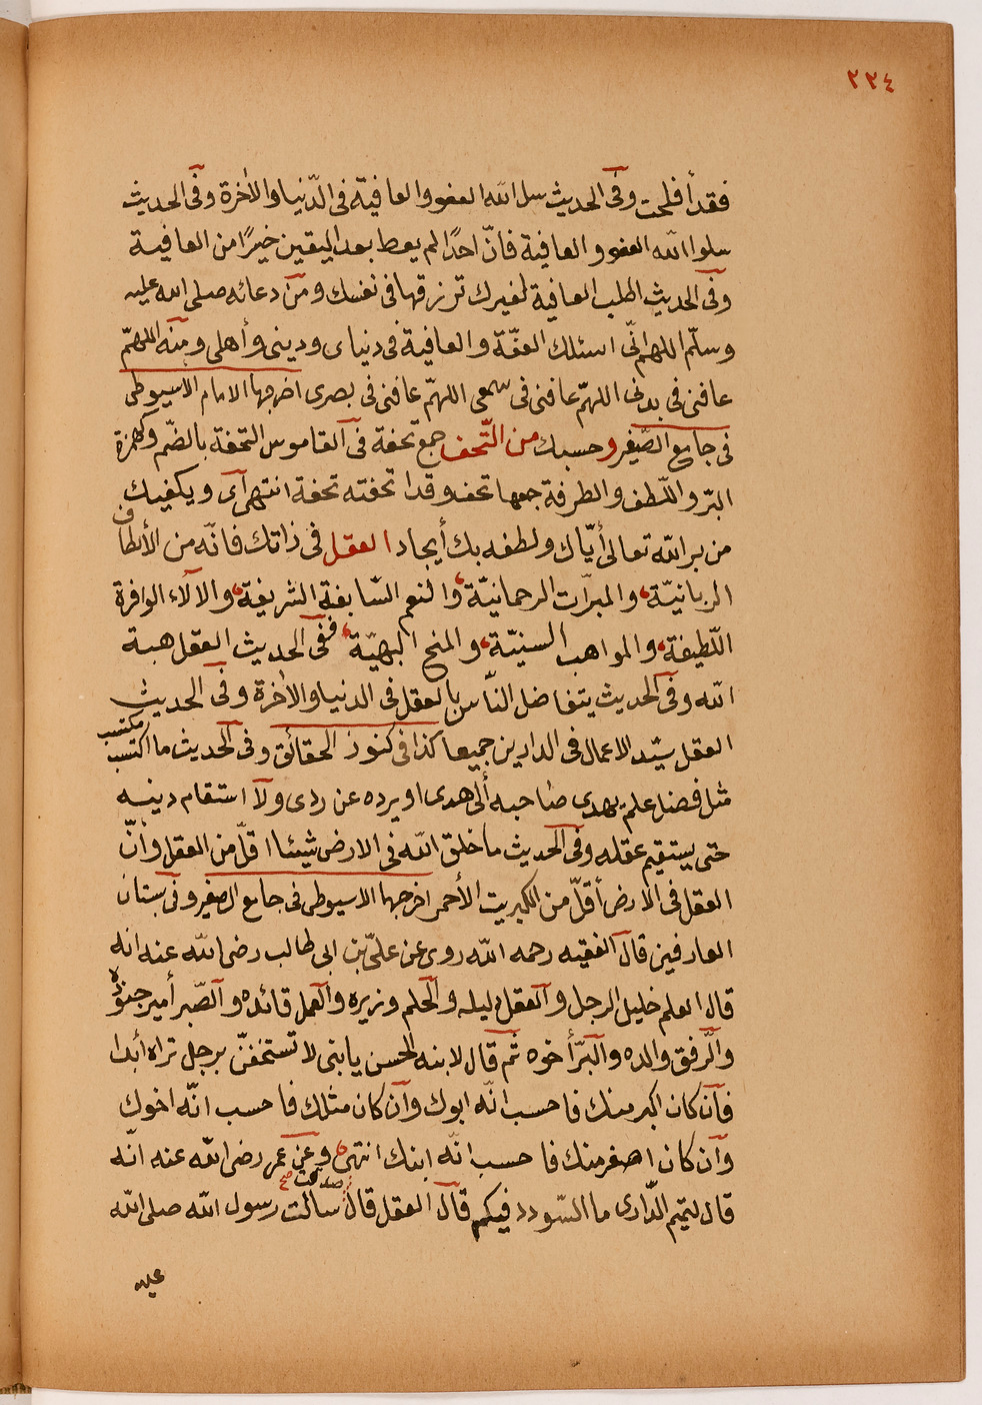 ٢٣٤
فقد أفلحت وفى الحديث سل الله العفو والعافية فى الدّنيا والاخرة وفى الحديث
سلوا الله العفو والعافية فانّ احدًا لم يعط بعد اليقين خيرًا من العافية
وفى الحديث اطلب العافية لغيرك ترزقها فى نفسك ومن دعائه صلى الله عليه
وسلّم اللهم انّى اسئلك العفّة والعافية فى دنياى ودينى وأهلى ومنه اللهمّ
عافنى فى بدنى اللهمّ عافنى فى سمعى اللهمّ عافنى فى بصرى اخرجها الامام الاسيوطى
فى جامع الصّغير وحسبك من التّحف جمع تحفة فى القاموس التحفة بالضّم وكهمزة
البّر واللّطف والطرفة جمعها تحف وقد اتحفته تحفة انتهى اى ويكفيك
من بر الله تعالى أيّاك ولطفه بك أيجاد العقل فى ذاتك فانّه من الألطاف
الربانيّة، والمبرّات الرحمانيّة، والنعم السّابغة الشريفة، والالاء الوافرة
اللّطيفة، والمواهب السنيّة، والمنح البهيّة، ففى الحديث العقل هبة
الله وفى الحديث يتفاضل النّاس بالعقل فى الدنيا والاخرة وفى الحديث
العقل سيّد الاعمال فى الدارين جميعا كذا فى كنوز الحقائق وفى الحديث ما اكتسب مكتسب
مثل فضل علم يهدى صاحبه ألى هدى او يرده عن ردى ولا استقام دينه
حتى يستقيم عقله وفى الحديث ما خلق الله فى الارض شيئا اقلّ من العقل وأنّ
العقل فى الارض أقلّ من الكبريت الأحمر اخرجها الاسيوطى فى جامع الصغير وفى بستان
العارفين قال الفقيه رحمه الله روى عن علىّ بن ابى طالب رضى الله عنه انه
قال العلم خليل الرجل والعقل دليله والحلم وزيره والعمل قائده والصّبر أمير جنوده
والرّفق والده والبرّ أخوه ثم قال لابنه الحسن يابنى لا تستخفنّ برجل تراه أبدا
فأن كان اكبر منك فاحسب انّه ابوك وأن كان مثلك فاحسب انّه اخوك
وأن كان اصغر منك فاحسب انّه ابنك انتهى، وعن عمر رضى الله عنه انّه
قال لتميم الدّارى ما السّودد فيكم قال العقل قال صدقت صح سالت رسول الله صلى الله
عليه